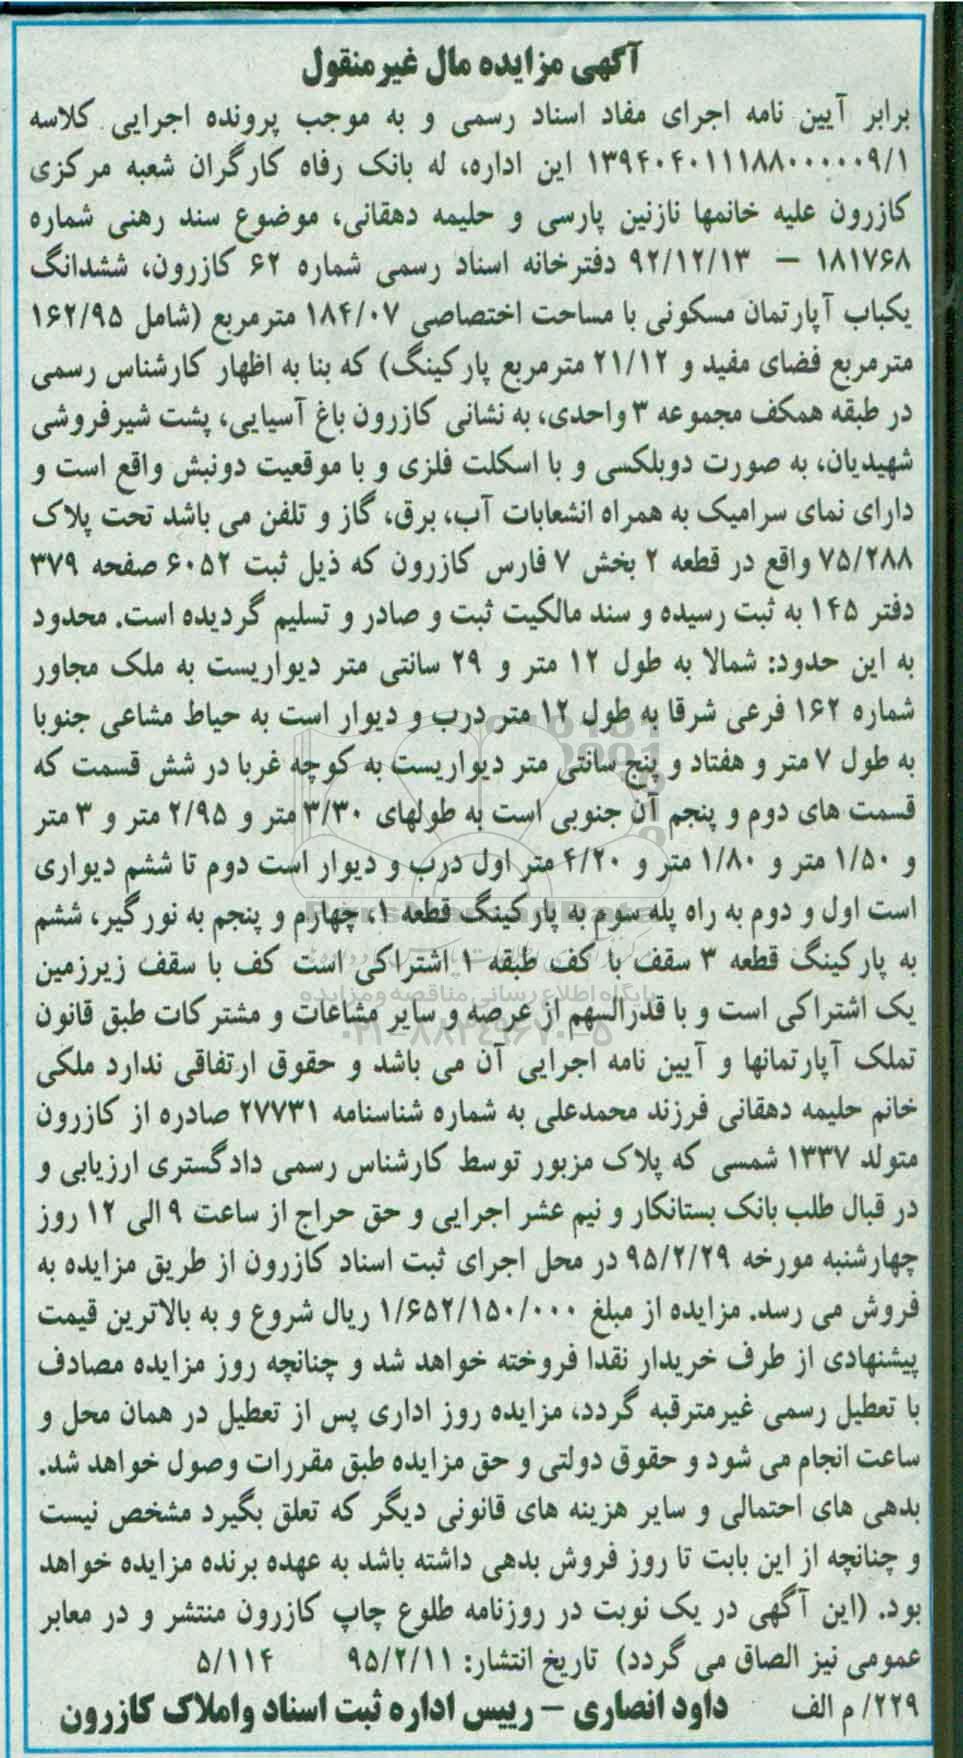 آگهی مزایده مال غیرمنقول
برابر آیین نامه اجرای مفاد اسناد رسمی و به موجب پرونده اجرایی کلاسه
۱۳۹۴۰۴۰۱۱۱۸۸۰۰۰۰۰۹/۱ این اداره، له بانک رفاه کارگران شعبه مرکزی
کازرون علیه خانمها نازنین پارسی و حلیمه دهقانی، موضوع سند رهنی شماره
۱۸۱۷۶۸ – ۹۲/۱۲/۱۳ دفترخانه اسناد رسمی شماره ۶۲ کازرون، ششدانگ
یکباب آپارتمان مسکونی با مساحت اختصاصی ۱۸۴/۰۷ مترمربع (شامل ۱۶۲/۹۵
مترمربع فضای مفید و ۲۱/۱۲ مترمربع پارکینگ) که بنا به اظهار کارشناس رسمی
در طبقه همکف مجموعه ۳ واحدی، به نشانی کازرون باغ آسیایی، پشت شیرفروشی
شهیدیان، به صورت دوبلکسی و با اسکلت فلزی و با موقعیت دونبش واقع است و
دارای نمای سرامیک به همراه انشعابات آب، برق، گاز و تلفن می باشد تحت پلاک
۷۵/۲۸۸ واقع در قطعه ۲ بخش ۷ فارس کازرون که ذیل ثبت ۶۰۵۲ صفحه ۳۷۹
دفتر ۱۴۵ به ثبت رسیده و سند مالکیت ثبت و صادر و تسلیم گردیده است. محدود
به این حدود: شمالا به طول ۱۲ متر و ۲۹ سانتی متر دیواریست به ملک مجاور
شماره ۱۶۲ فرعی شرقا به طول ۱۲ متر درب و دیوار است به حیاط مشاعی جنوبا
به طول ۷ متر و هفتاد و پنج سانتی متر دیواریست به کوچه غربا در شش قسمت که
قسمت های دوم و پنجم آن جنوبی است به طولهای ۳/۳۰ متر و ۲/۹۵ متر و ۳ متر
و ۱/۵۰ متر و ۱/۸۰ متر و ۴/۲۰ متر اول درب و دیوار است دوم تا ششم دیواری
است اول و دوم به راه پله سوم به پارکینگ قطعه ۱، چهارم و پنجم به نورگیر، ششم
به پارکینگ قطعه ۳ سقف با کف طبقه ۱ اشتراکی است کف با سقف زیرزمین
پایگاه اطلاع رسانی مناقصه و مزایده
یک اشتراکی است و با قدرالسهم از عرصه و سایر مشاعات و مشترکات طبق قانون
۰۲۱-۸۸۳۴۹۶۷۰-۵
تملک آپارتمانها و آیین نامه اجرایی آن می باشد و حقوق ارتفاقی ندارد ملکی
خانم حلیمه دهقانی فرزند محمدعلی به شماره شناسنامه ۲۷۷۳۱ صادره از کازرون
متولد ۱۳۳۷ شمسی که پلاک مزبور توسط کارشناس رسمی دادگستری ارزیابی و
در قبال طلب بانک بستانکار و نیم عشر اجرایی و حق حراج از ساعت ۹ الی ۱۲ روز
چهارشنبه مورخه ۹۵/۲/۲۹ در محل اجرای ثبت اسناد کازرون از طریق مزایده به
فروش می رسد. مزایده از مبلغ ۱/۶۵۲/۱۵۰/۰۰۰ ریال شروع و به بالاترین قیمت
پیشنهادی از طرف خریدار نقدا فروخته خواهد شد و چنانچه روز مزایده مصادف
با تعطیل رسمی غیرمترقبه گردد، مزایده روز اداری پس از تعطیل در همان محل و
ساعت انجام می شود و حقوق دولتی و حق مزایده طبق مقررات وصول خواهد شد.
بدهی های احتمالی و سایر هزینه های قانونی دیگر که تعلق بگیرد مشخص نیست
و چنانچه از این بابت تا روز فروش بدهی داشته باشد به عهده برنده مزایده خواهد
بود. (این آگهی در یک نوبت در روزنامه طلوع چاپ کازرون منتشر و در معابر
عمومی نیز الصاق می گردد) تاریخ انتشار: ۹۵/۲/۱۱ ۵/۱۱۴
۲۲۹/ م الف داود انصاری – رییس اداره ثبت اسناد واملاک کازرون